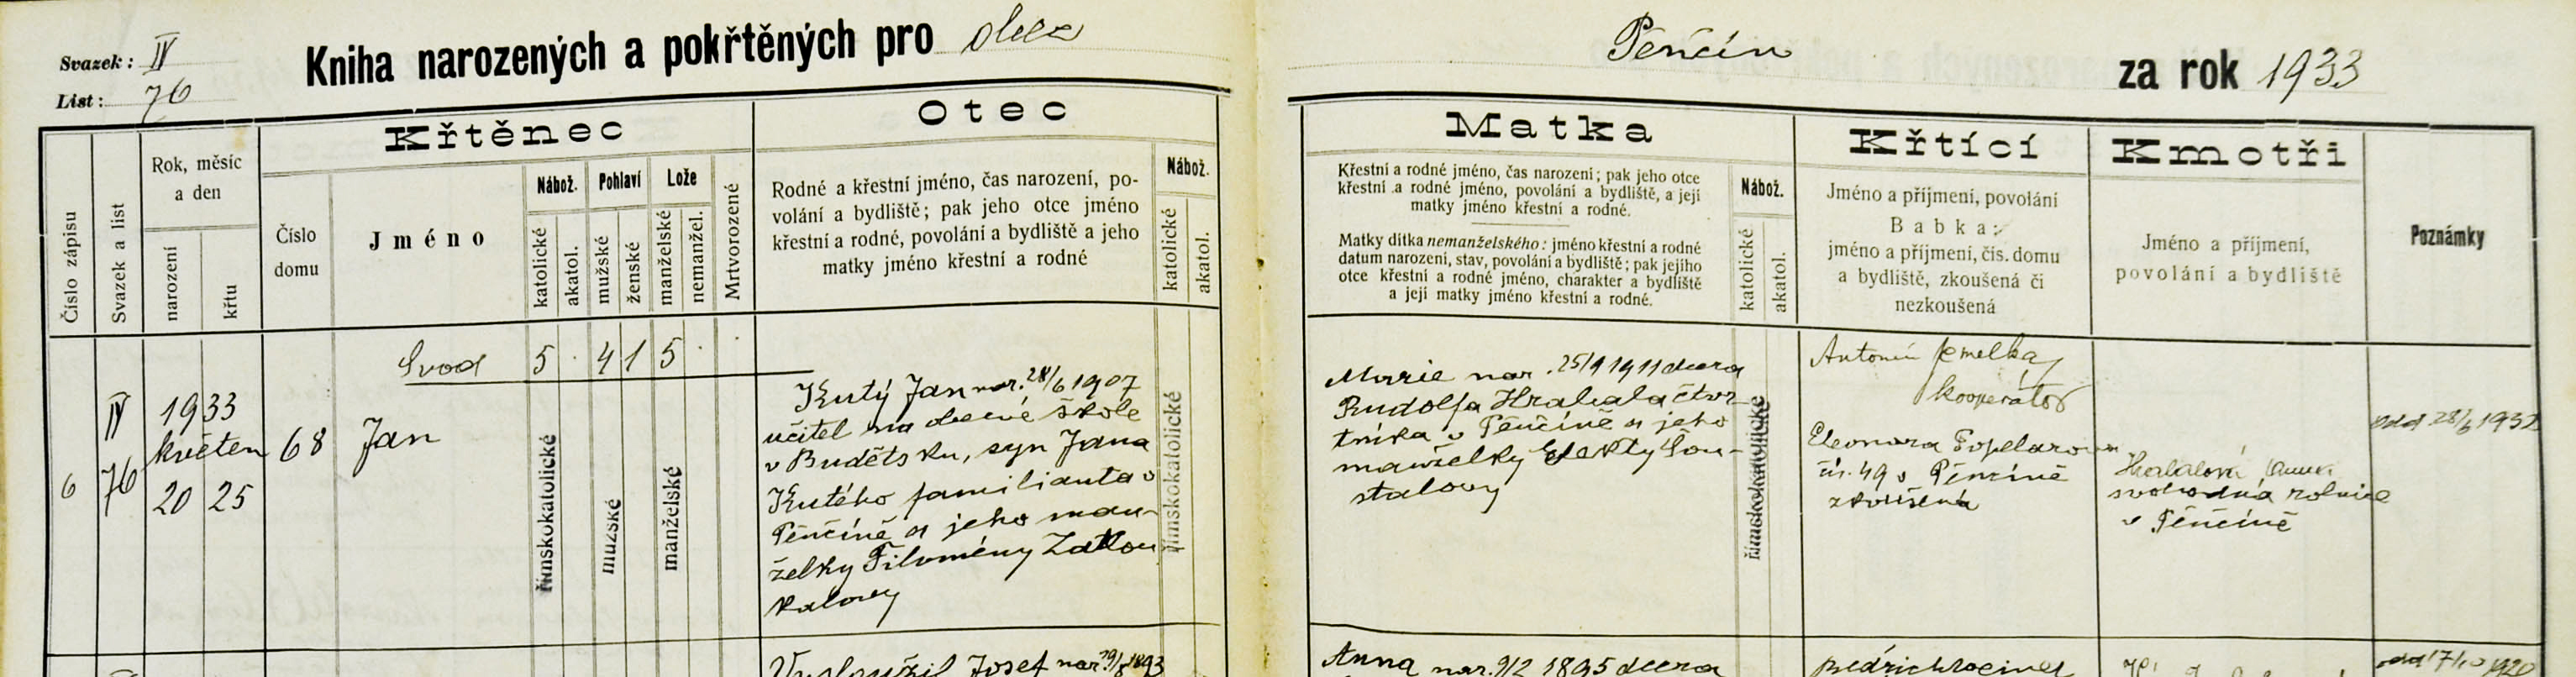 Svazek: IV
List: 76
Kniha narozených a pokřtěných pro obec
Pěnčín
za rok 1933
Číslo zápisu
Svazek a list
Rok, měsíc
a den
narození
křtu
Křtěnec
Číslo
domu
Jméno
Nábož.
katolické
akatol.
Pohlaví
mužské
ženské
Lože
manželské
nemanžel.
Mrtvorozené
Otec
Rodné a křestní jméno, čas narození, po-
volání a bydliště; pak jeho otce jméno
křestní a rodné, povolání a bydliště a jeho
matky jméno křestní a rodné
Nábož.
katolické
akatol.
Matka
Křestní a rodné jméno, čas narození; pak jeho otce
křestní a rodné jméno, povolání a bydliště, a její
matky jméno křestní a rodné.
Matky dítka nemanželského: jméno křestní a rodné
datum narození, stav, povolání a bydliště; pak jejího
otce křestní a rodné jméno, charakter a bydliště
a její matky jméno křestní a rodné.
Nábož.
katolické
akatol.
Křtící
Jméno a příjmení, povolání
Babka:
jméno a příjmení, čís. domu
a bydliště, zkoušená či
nezkoušená
Kmotři
Jméno a příjmení,
povolání a bydliště
Poznámky
Svod 5 . 4 1 5 . .
6
IV
76
1933
květen
20 25
68
Jan
římskokatolické
mužské
manželské
Kutý Jan nar. 28/6 1907
učitel na obecné škole
v Budětsku, syn Jana
Kutého familianta v
Pěnčíně a jeho man-
želky Filomény Zatlou
kalovy
římskokatolické
Marie nar. 25/9 1911 dcera
Rudolfa Hrabala čtvr
tníka v Pěnčíně a jeho
manželky Elekty Šou-
stalovy
římskokatolické
Antonín Jemelka
kooperátor
Eleonora Popelarova
čís. 49 v Pěnčíně
zkoušená
Hrabalová Anna
svobodná rolnice
v Pěnčíně
odd 28/6 1932
Vysloužil Josef nar. 1893
Anna nar. 9/2 1895 dcera
odd 17/10 1920